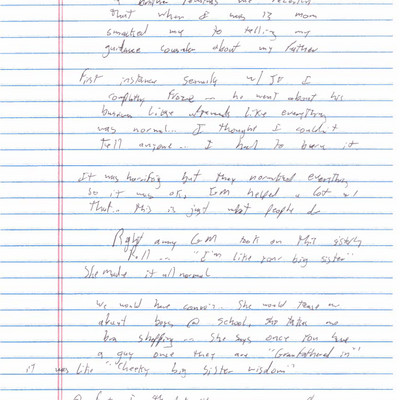 that when I was 13 mom
smacked me to telling my
guidance counselor about my father
First instance sexually w/ JE I
completely froze ... he went about his
business like everything
was normal... I thought I couldn't
tell anyone... I had to bury it
It was horrifying but they normalized everything
so it was ok, GM helped a lot w/
that.. this is just what people do
Right away GM took on that sisterly
roll ... "I'm like your big sister"
She made it all normal
we would have convo's.. She would tease me
about boys @ school, she takes me
bra shopping .. She says once you have
a guy once they are "Grandfathered in"
it was like "cheeky big sister wisdom"